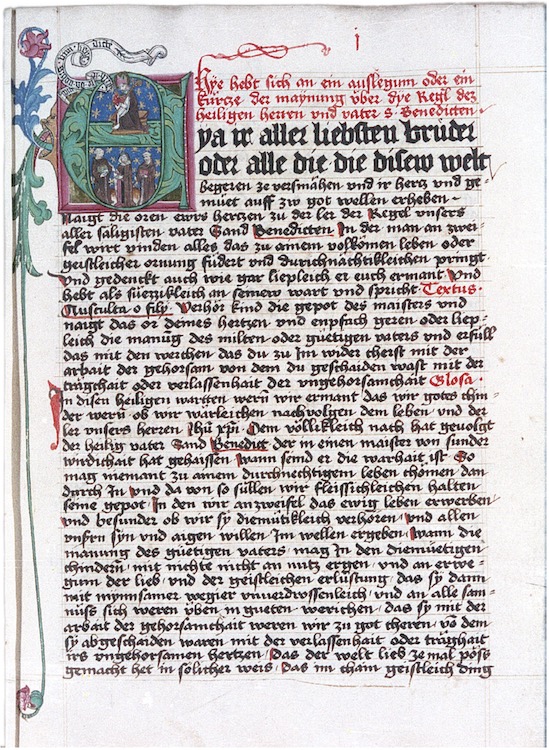 i
Hye hebt sich an ein auslegum oder ein
kürcze der maynung über dye Regl des
heiligen herren und vater s. Benedicten.
Eya ir aller liebsten brüder
oder alle die die disew welt
begeren ze versmähen und ir hertz und ge-
müet auff zw got wellen erheben.
Naigt die oren ewrs hertzen zu der ler der Regel unsers
aller säligisten vater Sand Benedicten. In der man an zwei-
fel wirt vinden alles das zu ainem volkömen leben oder
geistleicher ornung füdert und durichnachtikleichen pringt
und gedenckt auch wie gar liepleich er euch ermant. Und
hebt als süezzikleich an seinew wart und spricht. Textus.
Ausculta o fily. Verhör kind die gepot des maisters und
naigt das or deines hertzen und enpfach geren oder liep-
leich die manüg des milten oder güetigen vaters und erfüll
das mit den werchen das du zu Im wider cherst mit der
arbait der gehorsam von dem du geschaiden wast mit der
träghait oder verlassenhait der ungehorsamchait Glosa.
In disen heiligen wartten werü wir ermant das wir gots chin-
der werü. ob wir wärleichen nachvolgen dem leben und der
ler unsers herren Jhü xpü. Dem völlikleich nach hat gevolgt
der heilig vater Sand Benedict der in einen maister von sunder
wirdichait hat gehaissen. wann send er die warhait ist. So
mag niemant zu ainem durnechtigem leben chömen dan
durch In und da von so süllen wir fleissichleichen halten
seine gepot. In den wir an zweifel das ewig leben erwerben
und besunder ob wir sy diemütikleich verhören. und allen
unsrn syn und aigen willen Im wellen ergeben. Wann die
manung des güetigen vaters mag In den diemüetigen
chinderü. mit nichte nicht an nutz ergen. und an erwe-
gum der lieb. und der geistleichen erlüstung. das sy dann
mit mynnsamer wegier unverdrossenleich. und an alle sam-
nüss sich weren üben. in gueten werichen. das sy mit der
arbait der gehorsamchait weren wir zu got cheren. vö dem
sy abgeschaiden waren mit der verlassenhait oder träghait
irs ungehorsamen hertzen. das der welt lieb ze mal pöss
gemacht het in solicher weis. das im chain geistleich ding